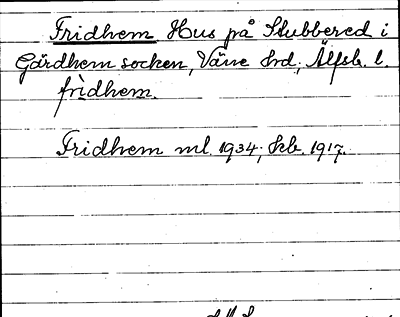 Fridhem Hus på Stubbered i
Gärdhem socken, Väne hrd; Älfsb. l.
frìdhem.
Fridhem ml. 1934; skb. 1917.